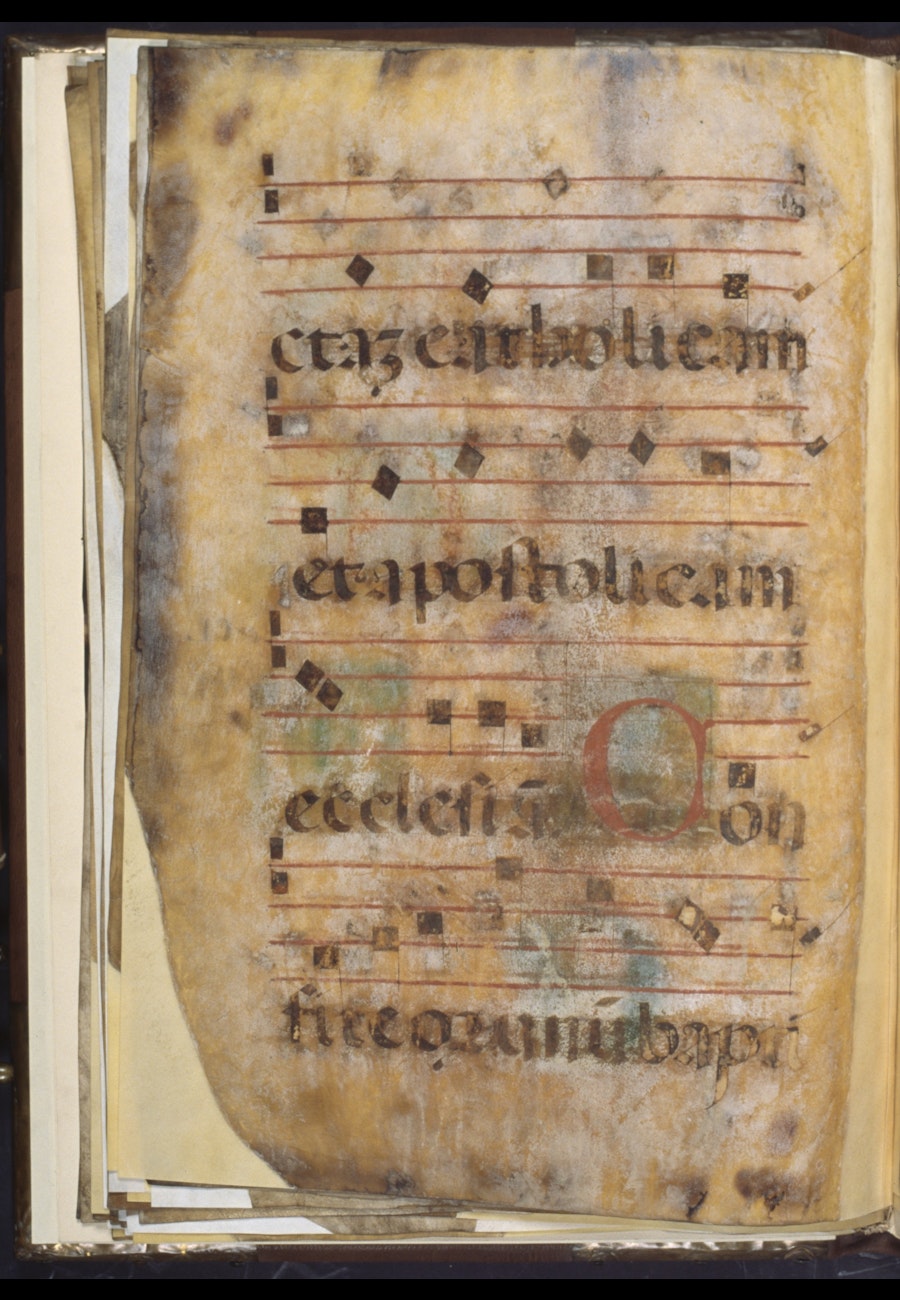 ctaꝫ catholicam
et apostolicam
ecclesiā Con
fiteoꝛ unū bapti